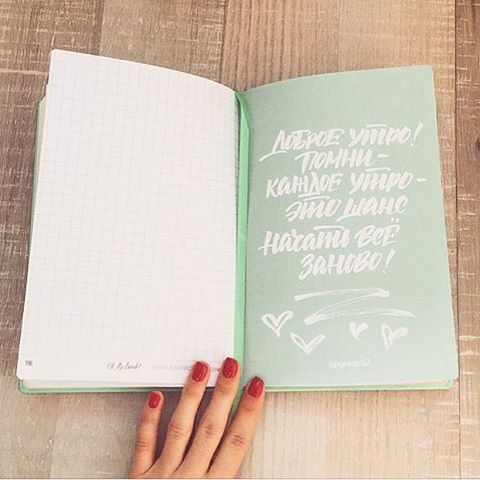 196
Oh My Book!
ДОБРОЕ УТРО!
ПОМНИ -
КАЖДОЕ УТРО -
ЭТО ШАНС
НАЧАТЬ ВСЁ
ЗАНОВО!